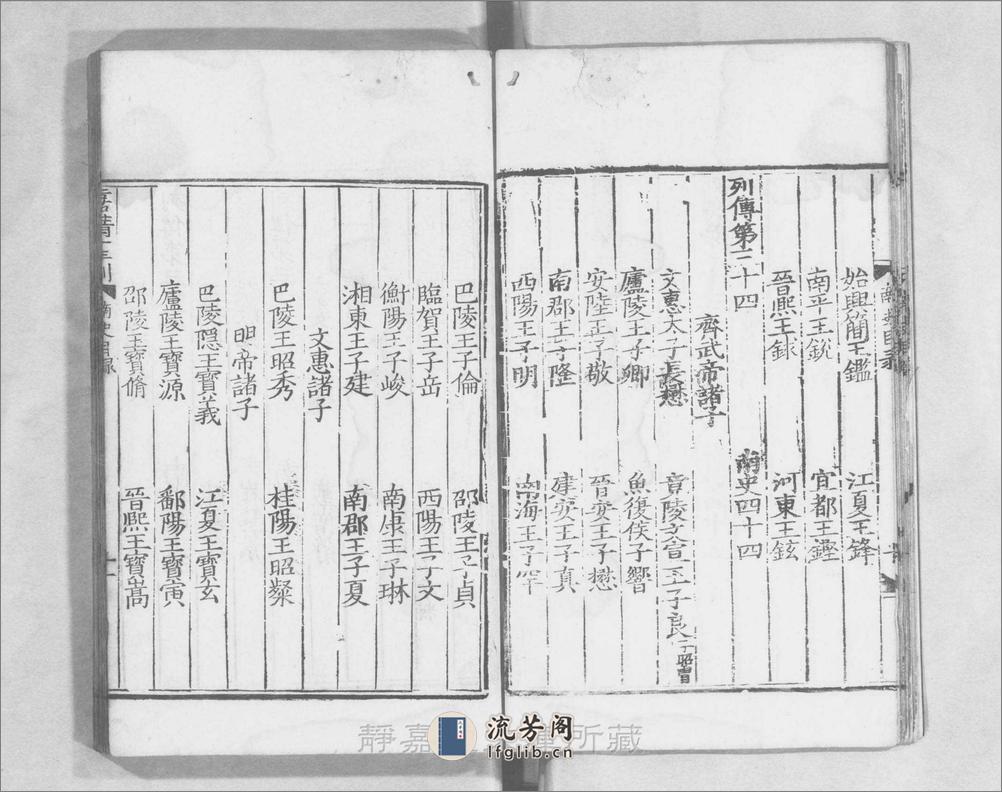 始興簡王鑑 江夏王鋒
南平王銳 宜都王鏗
晉熙王銶 河東王鉉
列傳第三十四 南史四十四
齊武帝諸子
文惠太子長懋 竟陵文宣王子良子昭胄
廬陵王子卿 魚復侯子響
安陸王子敬 晉安王子懋
南郡王子隆 建安王子真
西陽王子明 南海王子罕
巴陵王子倫 邵陵王子貞
臨賀王子岳 西陽王子文
衡陽王子峻 南康王子琳
湘東王子建 南郡王子夏
文惠諸子
巴陵王昭秀 桂陽王昭粲
明帝諸子
巴陵隱王寶義 江夏王寶玄
廬陵王寶源 鄱陽王寶寅
邵陵王寶脩 晉熙王寶嵩
南史目錄
靜嘉 所藏
流芳阁
lfglib.cn